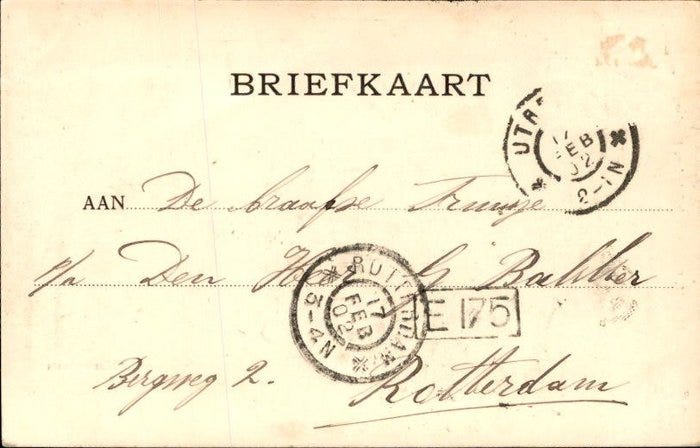 BRIEFKAART
UTR
17
FEB
02
2-1N
AAN De braafse Truusje
p/a Den Heer G Bakker
ROTTERDAM
17
FEB
02
N4-5
E 175
Bergweg 2. Rotterdam